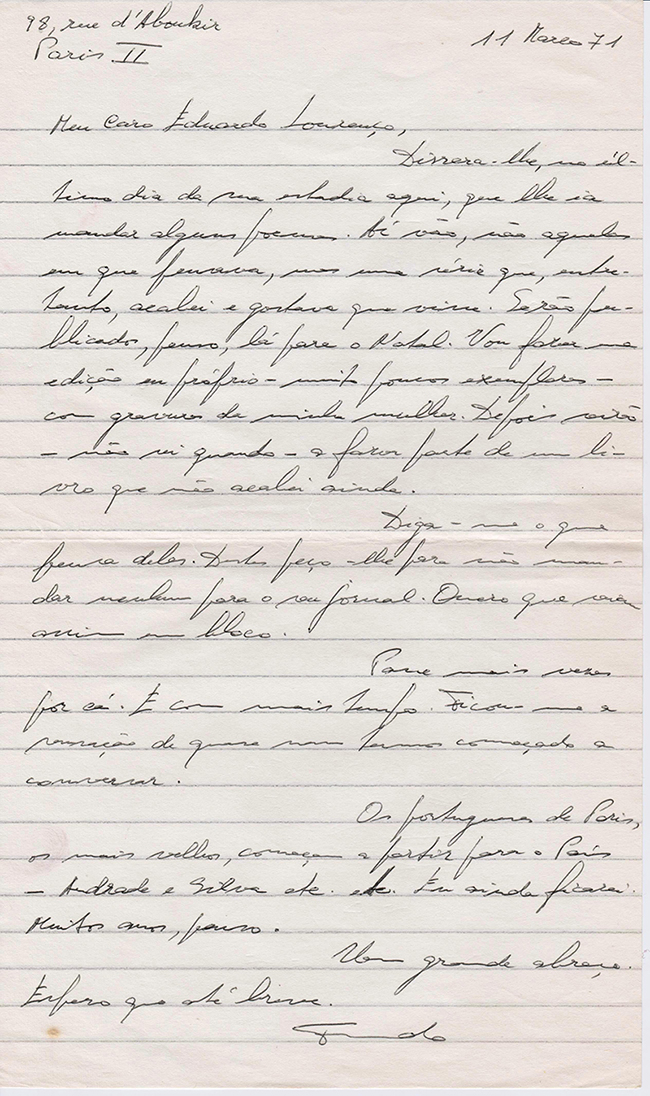 98, rue d'Aboukir
Paris II
11 Março 71
Meu caro Eduardo Lourenço,
Dissera-lhe, no úl-
timo dia da sua estadia aqui, que lhe ia
mandar alguns poemas. Aí vão, não aqueles
em que pensava, mas uma série que, entre-
tanto, acabei e gostava que visse. Serão pu-
blicados, penso, lá para o Natal. Vou fazer uma
edição eu próprio - muito poucos exemplares -
com gravuras da minha mulher. Depois virão
- não sei quando - a fazer parte de um li-
vro que não acabei ainda.
Diga-me o que
pensa deles. Destes peço-lhe para não man-
dar nenhum para o seu jornal. Quero que saiam
assim em bloco.
Passe mais vezes
por cá. E com mais tempo. Ficou-me a
sensação de quase nem termos começado a
conversar.
Os portugueses de Paris,
os mais velhos, começam a partir para o País
- Andrade e Silva etc. etc. Eu ainda ficarei.
Muitos anos, penso.
Um grande abraço.
Espero que até breve.